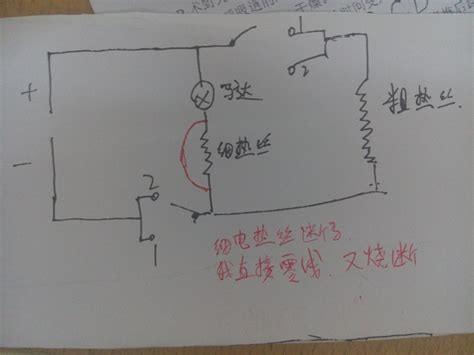 1
2
+
马达
粗热丝
细热丝
−
2
1
细电热丝断了
我直接零线、又烧断